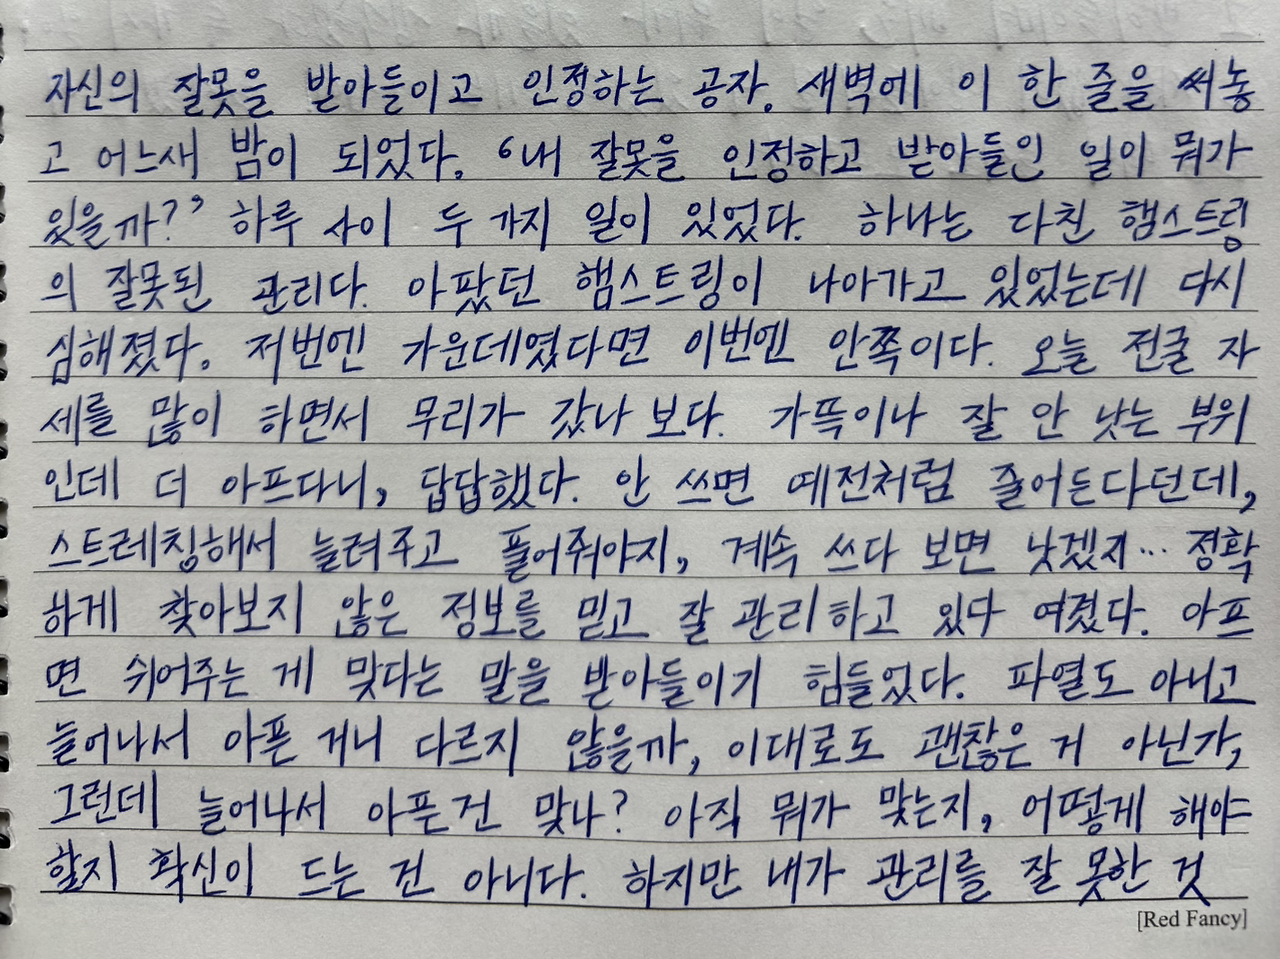 자신의 잘못을 받아들이고 인정하는 공자. 새벽에 이 한 줄을 써놓
고 어느새 밤이 되었다. ‘내 잘못을 인정하고 받아들인 일이 뭐가
있을까?’ 하루 사이 두 가지 일이 있었다. 하나는 다친 햄스트링
의 잘못된 관리다. 아팠던 햄스트링이 나아가고 있었는데 다시
심해졌다. 저번엔 가운데였다면 이번엔 안쪽이다. 오늘 전굴 자
세를 많이 하면서 무리가 갔나 보다. 가뜩이나 잘 안 낫는 부위
인데 더 아프다니, 답답했다. 안 쓰면 예전처럼 줄어든다던데,
스트레칭해서 늘려주고 풀어줘야지, 계속 쓰다 보면 낫겠지… 정확
하게 찾아보지 않은 정보를 믿고 잘 관리하고 있다 여겼다. 아프
면 쉬어주는 게 맞다는 말을 받아들이기 힘들었다. 파열도 아니고
늘어나서 아픈 거니 다르지 않을까, 이대로도 괜찮은 거 아닌가,
그런데 늘어나서 아픈 건 맞나? 아직 뭐가 맞는지, 어떻게 해야
할지 확신이 드는 건 아니다. 하지만 내가 관리를 잘 못한 것
[Red Fancy]